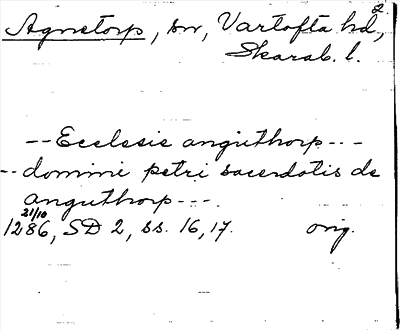 Agnetorp, sn, Vartofta hd,
Skarab. l.
-- Ecclesie anguthorp ---
-- domini petri sacerdotis de
anguthorp ---
21/10
1286, SD 2, ss. 16, 17. orig.